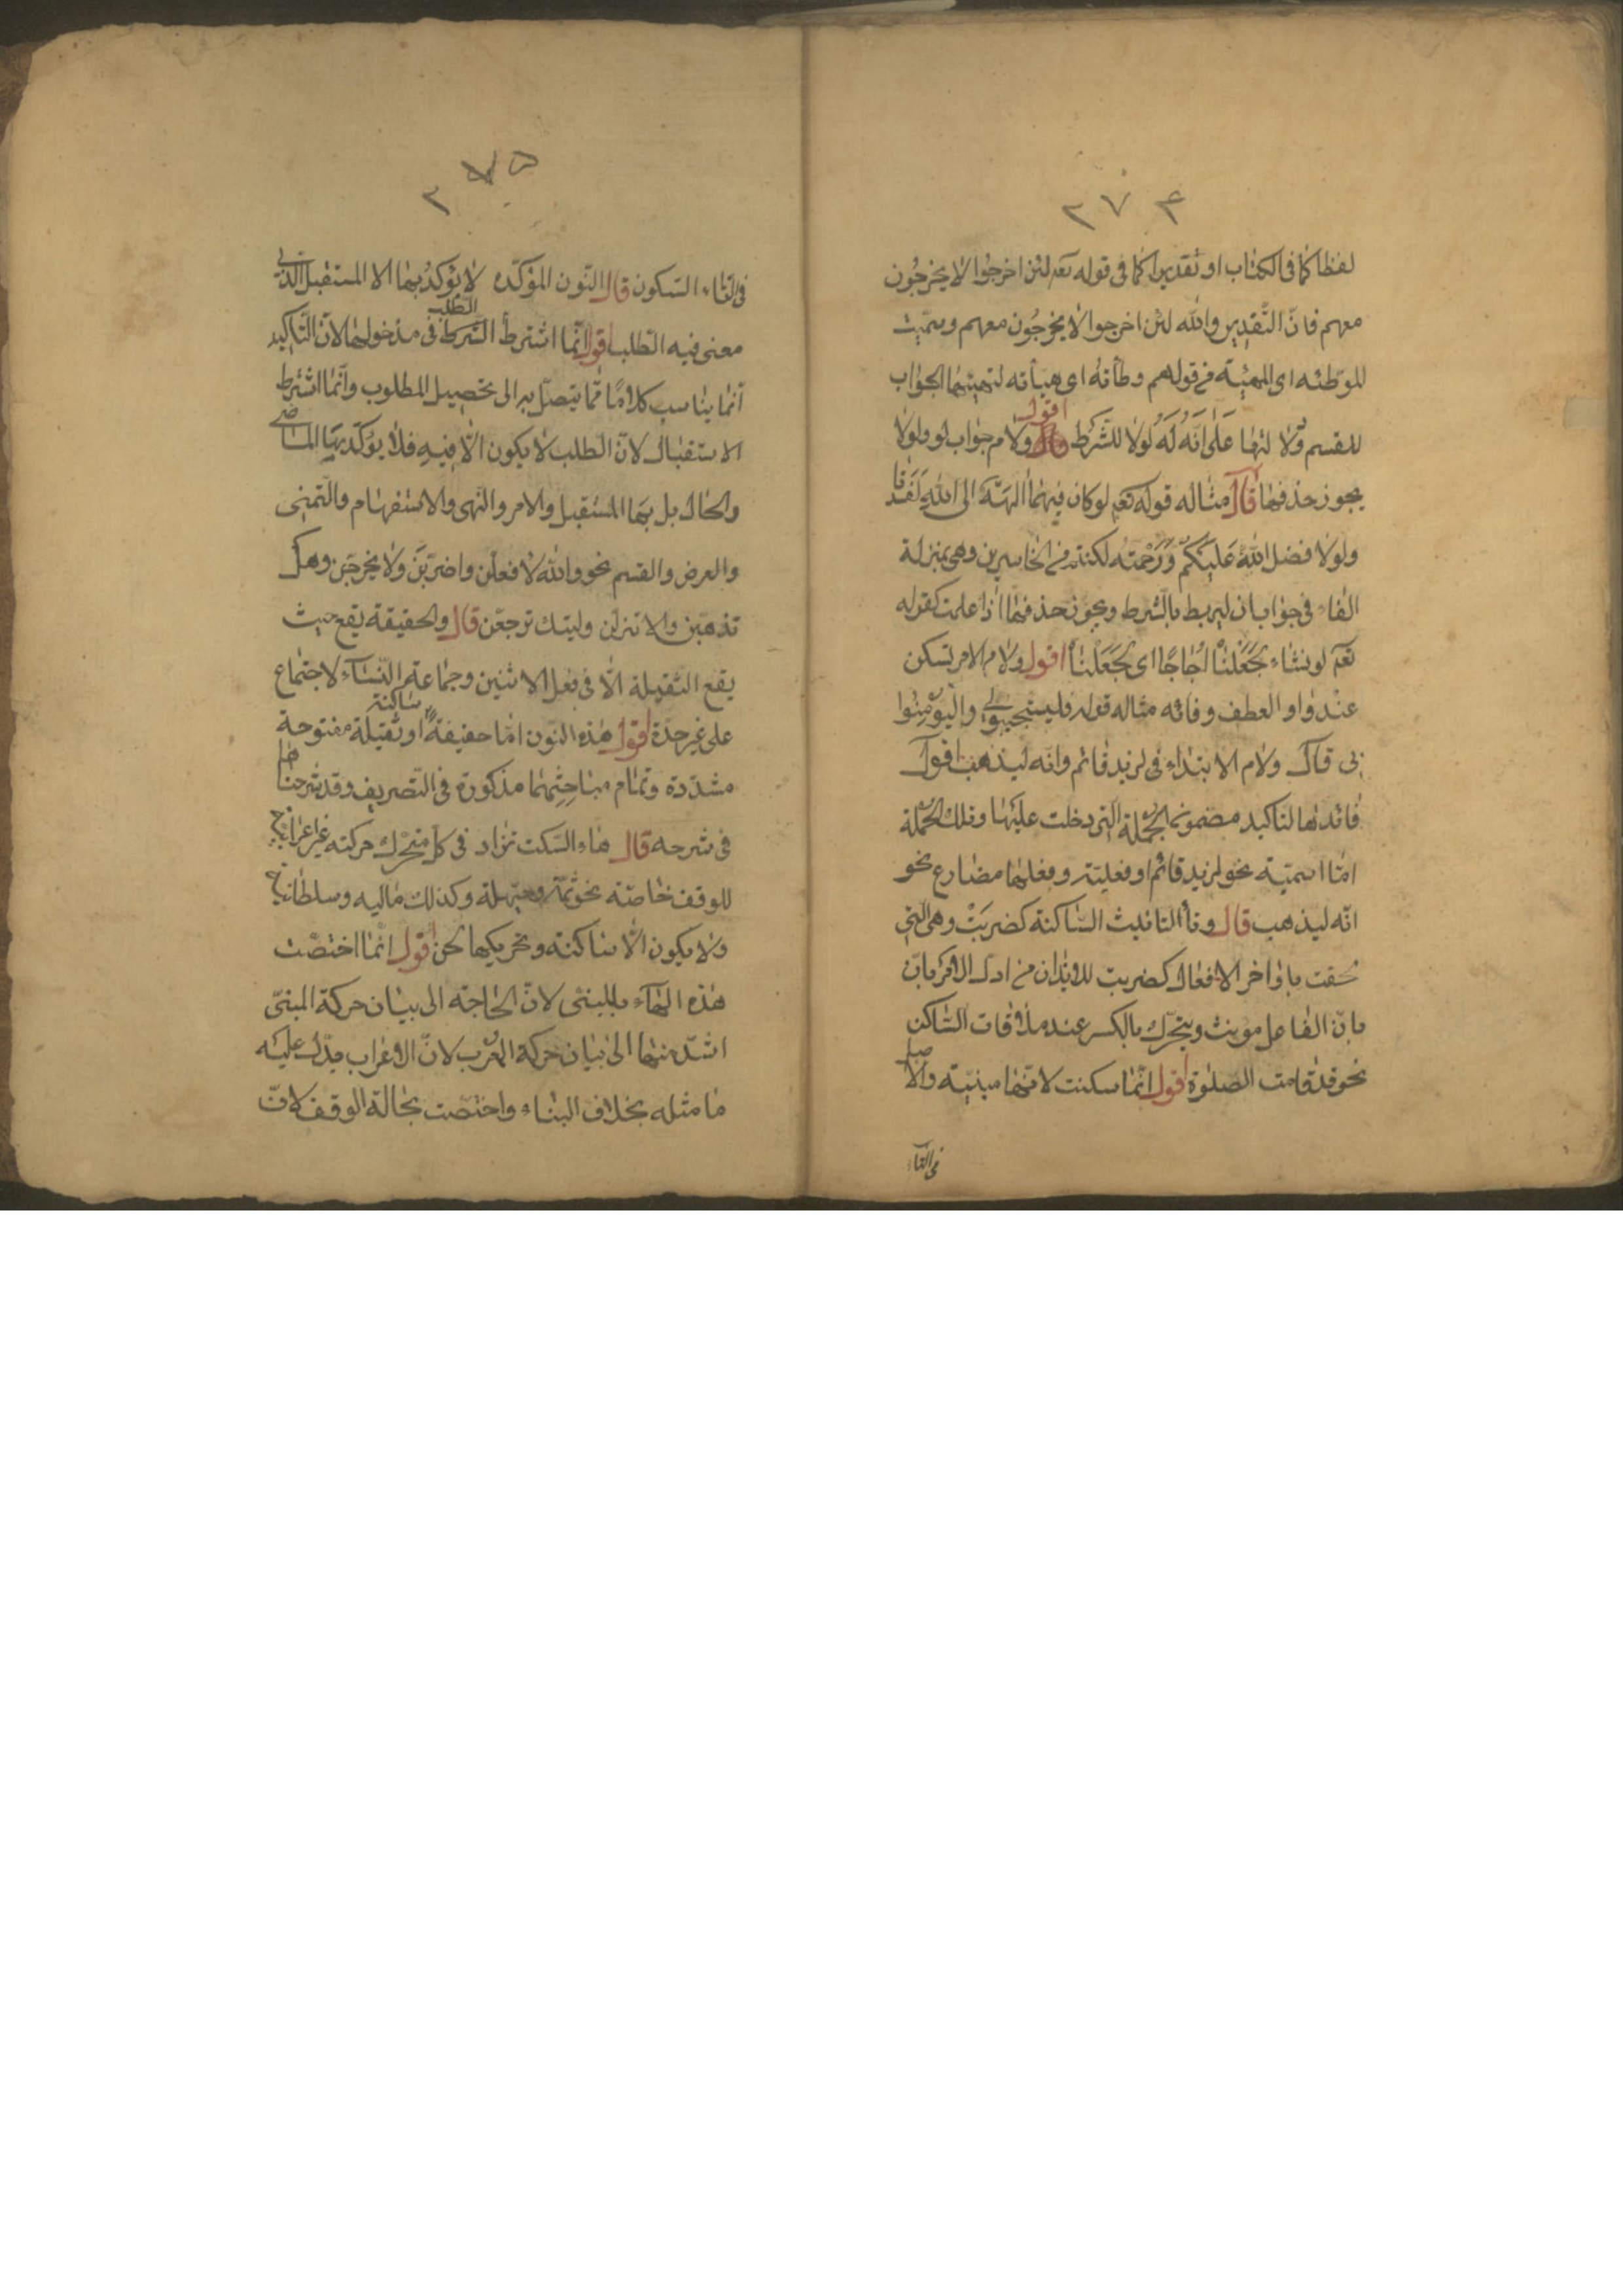 ۲۷۴
لفظا كما فى الكتاب او تقديرا كما فى قوله تعم لئن اخرجوا لا يخرجون
معهم فانّ التّقدير والله لئن اخرجوا لا يخرجون معهم وسمّيت
للموّطئه اى المهيّئة من قولهم وطأته اى هيأته لتهيئتها الجواب
للقسم ولا لتها على انّه له لا للشّرط اقول ولام جواب لو ولولا
يجوز حذفها قال مثاله قوله تعم لو كان فيهما الهة الى الله لفسدتا
ولولا فضل الله عليكم ورحمته لكنتم من الخاسرين وهى بمنزلة
الفاء فى جواب ان ليربط بالشرط ويجوز حذفها اذا علمت كقوله
تعم لو نشاء جعلناه اجاجا اى لجعلناه اقول ولام الامر تسكن
عند واو العطف وفائه مثاله قوله فليستجيبوا لى وليؤمنوا
بى قال ولام الابتداء فى لزيد قائم وانه ليذهب اقول
فائدتها لتاكيد مضمون الجملة التى دخلت عليها وتلك الجملة
امّا اسميّة نحو لزيد قائم او فعلية وفعلها مضارع نحو
انّه ليذهب قال وتاء التانيث الساكنة كضربت وهى التى
لحقت باواخر الافعال كضربت للايذان من اول الامر بانّ
بانّ الفاعل مونث ويتحرّك بالكسر عند ملاقات السّاكن
نحو قد قامت الصلوة اقول انّما سكنت لانّها مبنيّة والاصل
فى التاء
۲۷۵
فى التاء السّكون قال النّون المؤكّده لا يؤكد بها الا المستقبل الذى
معنى فيه الطلب اقول انّما اشترط الشرط الطلب فى مدخولها لانّ التّاكيد
انّما يناسب كلاما ممّا يتصل به الى تحصيل المطلوب وانّما اشترط
الاستقبال لانّ الطلب لا يكون الّا فيه فلا يؤكّد بها الماضى
والحال بل بها المستقبل والامر والنّهى والاستفهام والتّمنى
والعرض والقسم نحو والله لافعلن واضربن ولا يخرجن وهل
تذهبن والا تنزلن وليتك ترجعن قال والخفيفة يقع حيث
يقع الثقيلة الّا فى فعل الاثنين وجماعة النّساء لاجتماع
على غير حدّة اقول هذه النّون امّا خفيفة ساكنة او ثقيلة مفتوحة
مشدّدة وتمام مباحثهما مذكورة فى التّصريف وقد شرحناها
فى شرحه قال هاء السّكت تزاد فى كلّ متحرّك حركته غير اعرابيّة
للوقف خاصّه نحو ثمّه وحيّهله وكذلك ماليه وسلطانيه
ولا يكون الّا ساكنة وتحريكها لحن اقول انّما اختصّت
هذه الهاء بالمبنى لانّ الحاجة الى بيان حركة المبنىّ
اشدّ منها الى بيان حركة المعرب لانّ الاعراب يدّل عليه
ما مثله بخلاف البناء واختصّت بحالة الوقف لانّ